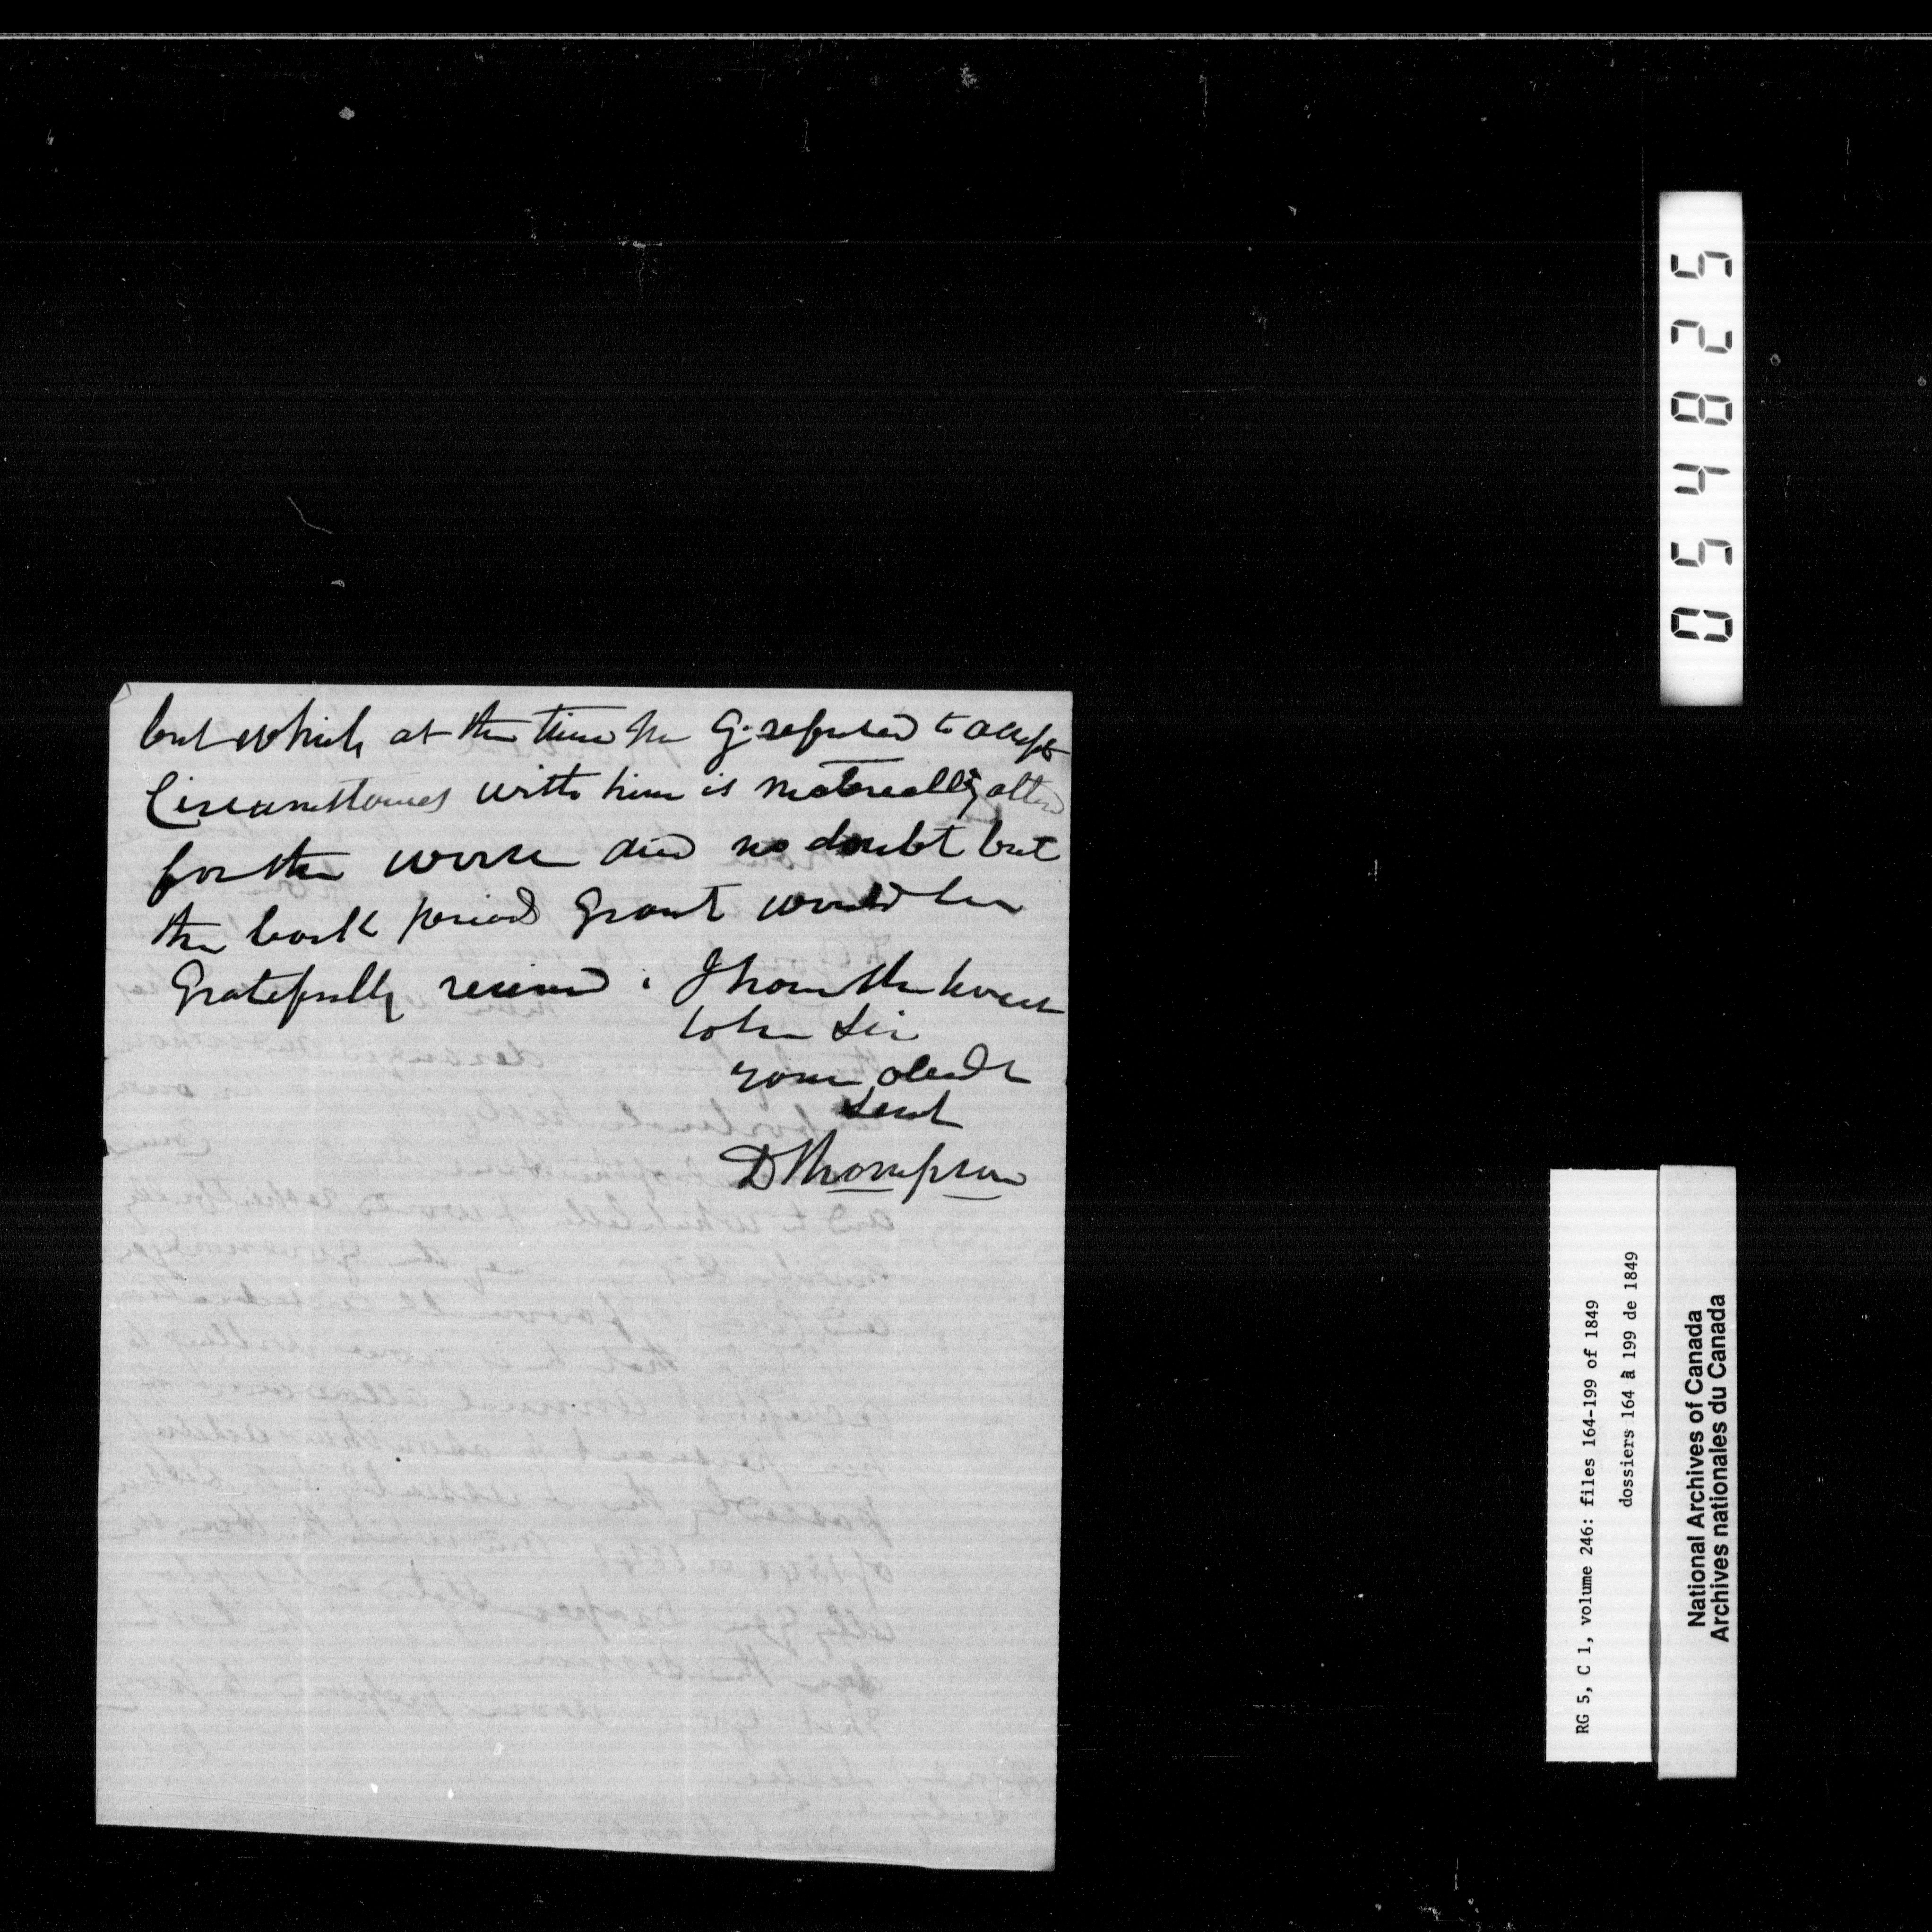 but which at the time Mr G. refused to accept
Circumstances with him is matereally alterd
for the worse and no doubt but
the back period Grant would be
Gratefully received. I have the honour
to be Sir
your obedt
Servt
D Thompson
054825
RG 5, C 1, volume 246: files 164-199 of 1849
dossiers 164 à 199 de 1849
National Archives of Canada
Archives nationales du Canada